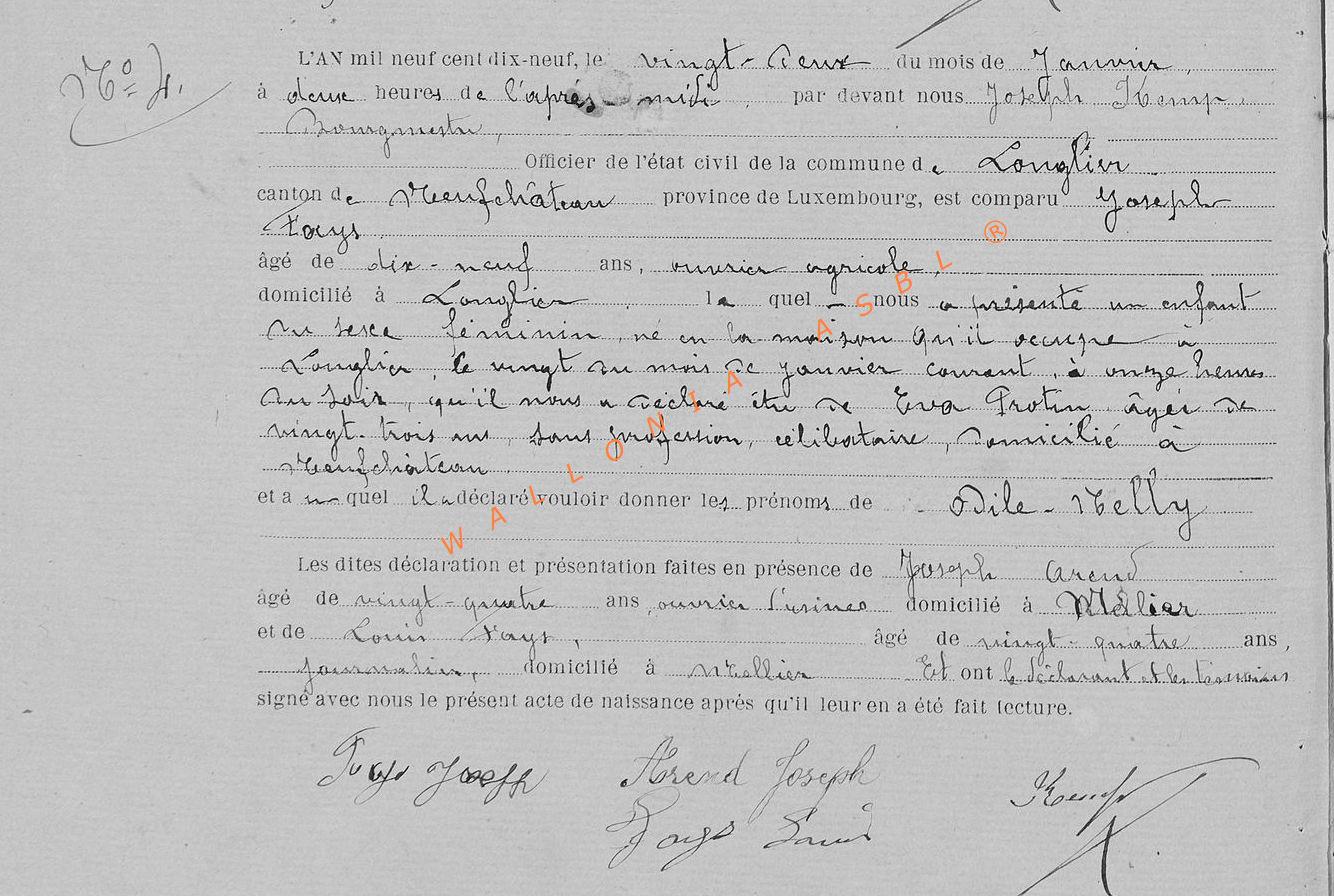 L'AN mil neuf cent dix-neuf, le vingt-deux du mois de Janvier,
No 4.
à deux heures de l'après-midi, par devant nous Joseph Kemp,
Bourgmestre,
Officier de l'état civil de la commune de Longlier
canton de Neufchâteau province de Luxembourg, est comparu Joseph
Fays
âgé de dix-neuf ans, ouvrier agricole,
domicilié à Longlier, le quel nous a présenté un enfant
du sexe féminin, né en la maison qu'il occupe à
Longlier, le vingt du mois de janvier courant, à onze heures
du soir, qu'il nous a déclaré être de Eva Protin âgée de
vingt-trois ans, sans profession, célibataire, domicilié à
Neufchâteau.
et auquel il a déclaré vouloir donner les prénoms de Odile-Nelly
Les dites déclaration et présentation faites en présence de Joseph Arend
âgé de vingt-quatre ans, ouvrier d'usines domicilié à Mellier
et de Louis Fays, âgé de vingt-quatre ans,
journalier, domicilié à Mellier Et ont le déclarant et les témoins
signé avec nous le présent acte de naissance après qu'il leur en a été fait lecture.
Fays Joseph Arend Joseph Kemp
Fays Louis
WALLONIA ASBL ®